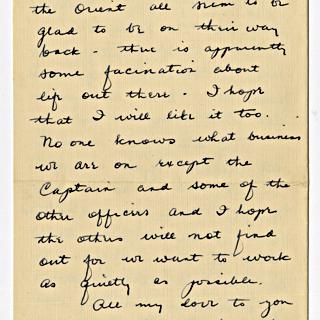 the Orient all seem to be
glad to be on their way
back - there is apparently
some facination about
life out there - I hope
that I will like it too.
No one knows what business
we are on except the
Captain and some of the
other officers and I hope
the others will not find
out for we want to work
as quietly as possible.
All my love to you